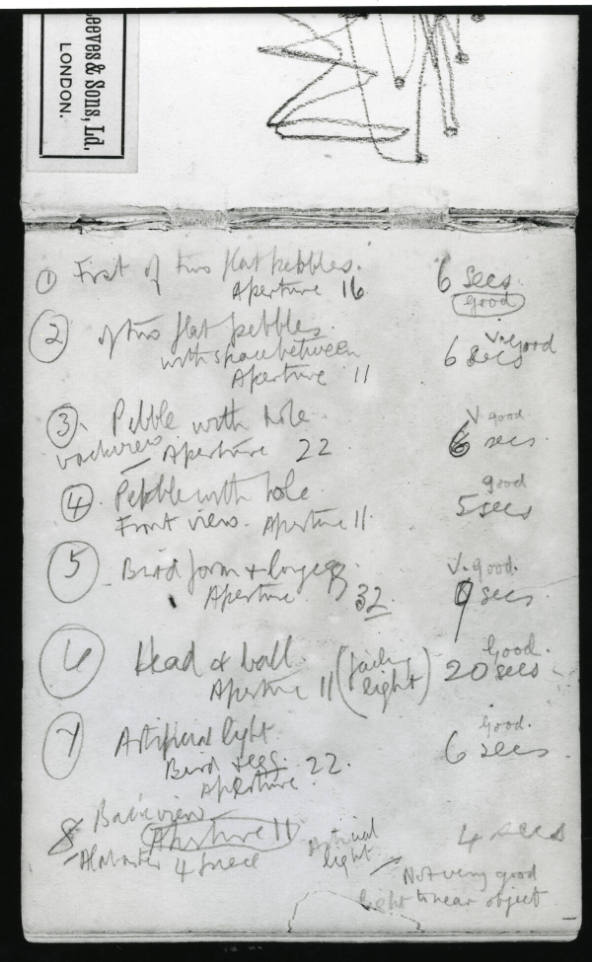 eeves & Sons, Ld.
LONDON.
① First of two flat pebbles. 6 secs.
Aperture 16 good
② of two flat pebbles v. good
with space between 6 secs
Aperture 11
③ Pebble with hole v good
backview - Aperture 22 6 secs
④ Pebble with hole good
Front view. Aperture 11. 5 secs
⑤ Bird form & v. good.
Aperture 32 9 secs
⑥ Head & ball. Good.
Aperture 11 (fading light) 20 secs
⑦ Artificial light Good.
Bird & egg. 6 secs
Aperture 22.
8 Back view
Aperture 11 4 secs
Alabaster 4 piece Artificial light - Not very good
light to near object